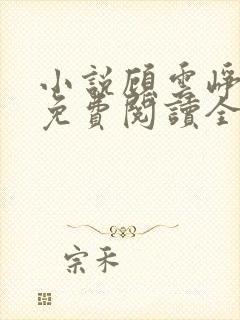 小説顧雲崢
免費閱讀全
宗禾